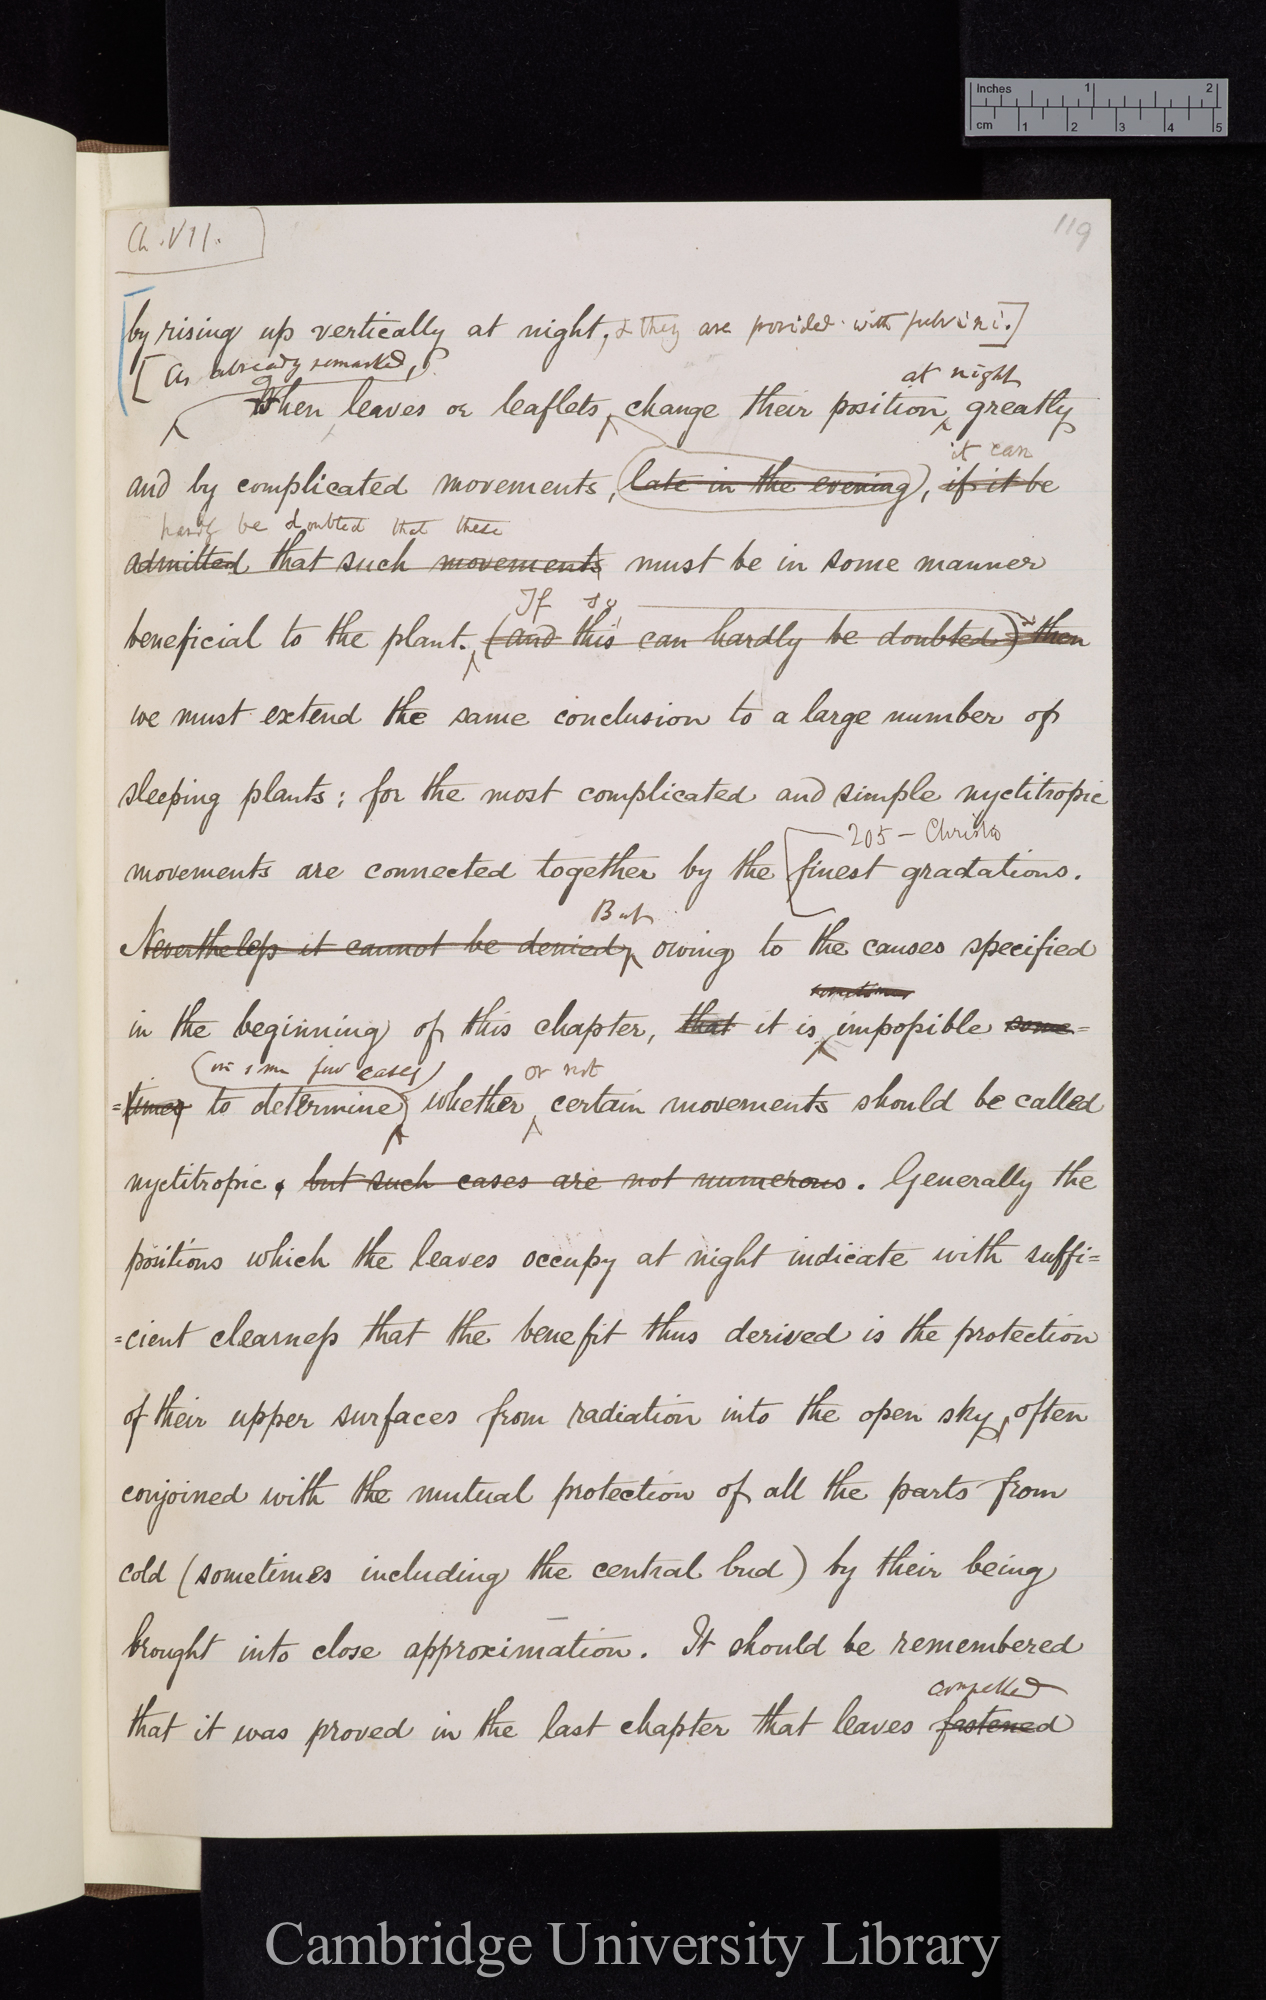 Inches 1 2
cm 1 2 3 4 5
Ch. VII.
119
by rising up vertically at night, & they are provided with pulvini.]
[As already remarked,
at night
When leaves or leaflets change their position greatly
it can
and by complicated movements, late in the evening, if it be
hardly be doubted that these
admitted that such movements must be in some manner
If so
beneficial to the plant. (and this can hardly be doubted) then
we must extend the same conclusion to a large number of
sleeping plants; for the most complicated and simple nyctitropic
205 –
movements are connected together by the [finest gradations.
But
Nevertheless it cannot be denied, owing to the causes specified
sometimes
in the beginning of this chapter, that it is impossible some=
(in some few cases) or not
=times to determine whether certain movements should be called
nyctitropic, but such cases are not numerous. Generally the
positions which the leaves occupy at night indicate with suffi=
=cient clearness that the benefit thus derived is the protection
of their upper surfaces from radiation into the open sky, often
conjoined with the mutual protection of all the parts from
cold (sometimes including the central bud) by their being
brought into close approximation. It should be remembered
compelled
that it was proved in the last chapter that leaves fastened
Cambridge University Library